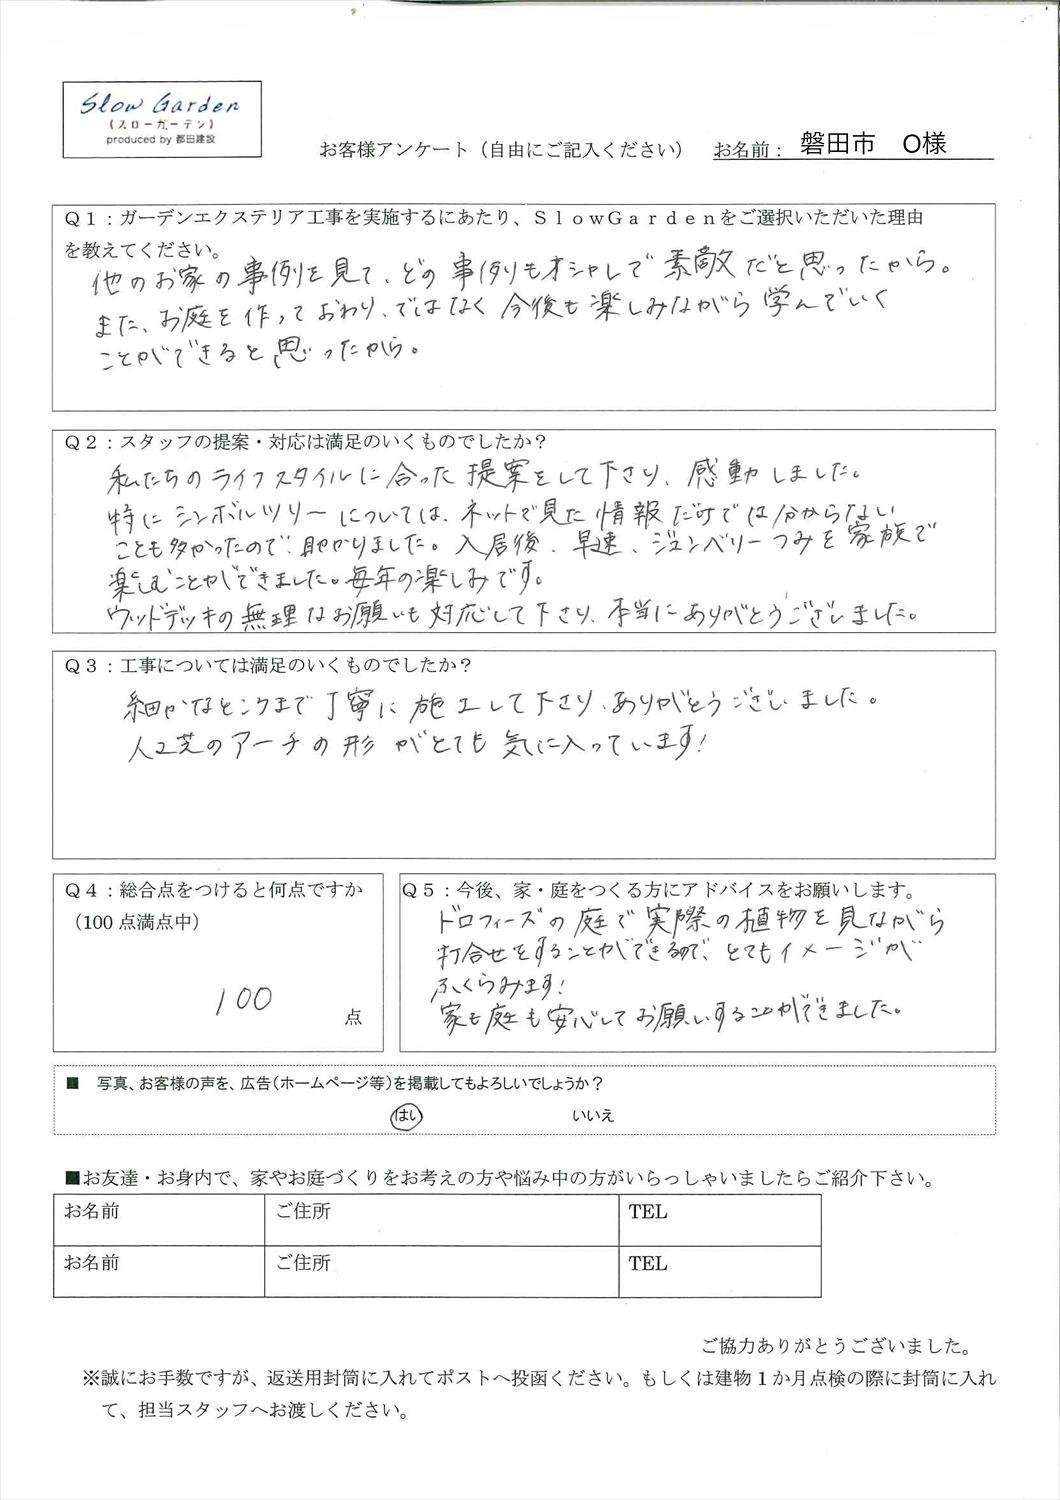 Slow Garden
《スローガーデン》
produced by 都田建設
お客様アンケート（自由にご記入ください） お名前： 磐田市 O様
Q1：ガーデンエクステリア工事を実施するにあたり、SlowGardenをご選択いただいた理由
を教えてください。
他のお家の事例を見て、どの事例もオシャレで素敵だと思ったから。
また、お庭を作っておわり、ではなく今後も楽しみながら学んでいく
ことができると思ったから。
Q2：スタッフの提案・対応は満足のいくものでしたか？
私たちのライフスタイルに合った提案をして下さり、感動しました。
特にシンボルツリーについては、ネットで見た情報だけでは分からない
ことも多かったので、助かりました。入居後、早速、ジュンベリーつみを家族で
楽しむことができました。毎年の楽しみです。
ウッドデッキの無理なお願いも対応して下さり、本当にありがとうございました。
Q3：工事については満足のいくものでしたか？
細かなところまで丁寧に施工して下さり、ありがとうございました。
人工芝のアーチの形がとても気に入っています!
Q4：総合点をつけると何点ですか
（100点満点中）
100
点
Q5：今後、家・庭をつくる方にアドバイスをお願いします。
ドロフィーズの庭で実際の植物を見ながら
打合せをすることができるので、とてもイメージが
ふくらみます!
家も庭も安心してお願いすることができました。
■ 写真、お客様の声を、広告（ホームページ等）を掲載してもよろしいでしょうか？
はい いいえ
■お友達・お身内で、家やお庭づくりをお考えの方や悩み中の方がいらっしゃいましたらご紹介下さい。
お名前 ご住所 TEL
お名前 ご住所 TEL
ご協力ありがとうございました。
※誠にお手数ですが、返送用封筒に入れてポストへ投函ください。もしくは建物1か月点検の際に封筒に入れ
て、担当スタッフへお渡しください。